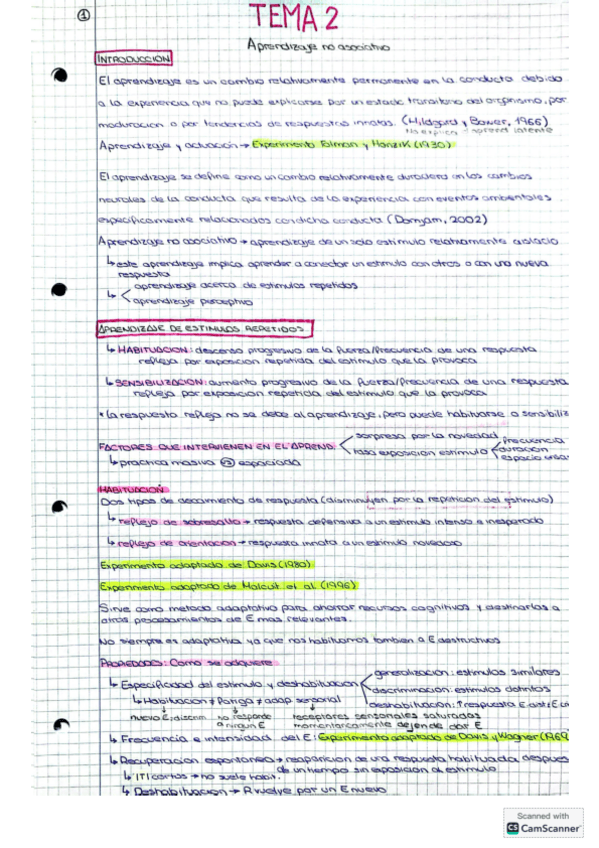 1
TEMA 2
Aprendizaje no asociativo
INTRODUCCIÓN
El aprendizaje es un cambio relativamente permanente en la conducta debido
a la experiencia que no puede explicarse por un estado transitorio del organismo, por
maduracion o por tendencias de respuestas innatas. (Hildgard y Bower, 1966)
No explica aprend latente
Aprendizaje y actuacion → Experimento Tolman y Honzik (1930)
El aprendizaje se define como un cambio relativamente duradero en los cambios
neurales de la conducta que resulta de la experiencia con eventos ambientales
especificamente relacionados con dicha conducta (Domjam, 2002)
Aprendizaje no asociativo → aprendizaje de un solo estimulo relativamente aislado
↳ este aprendizaje implica aprender a conectar un estimulo con otros o con una nueva
respuesta
↳ aprendizaje acerca de estimulos repetidos
aprendizaje perceptivo
APRENDIZAJE DE ESTIMULOS REPETIDOS
↳ HABITUACION: descenso progresivo de la fuerza/frecuencia de una respuesta
refleja por exposicion repetida del estimulo que la provoca
↳ SENSIBILIZACION: aumento progresivo de la fuerza/frecuencia de una respuesta
refleja por exposicion repetida del estimulo que la provoca
*La respuesta refleja no se debe al aprendizaje, pero puede habituarse o sensibiliz
FACTORES QUE INTERVIENEN EN EL APREND. sorpresa por la novedad
tasa exposicion estimulo frecuencia
duracion
espacio
↳ practica masiva vs espaciada
HABITUACION
Dos tipos de decaimiento de respuesta (disminuyen por la repeticion del estimulo)
↳ reflejo de sobresalto → respuesta defensiva a un estimulo intenso e inesperado
↳ reflejo de orientacion → respuesta innata a un estimulo novedoso
Experimento adaptado de Davis (1980)
Experimento adaptado de Malcuit et al. (1996)
Sirve como metodo adaptativo para ahorrar recursos cognitivos y destinarlos a
otros procesamientos de E mas relevantes.
No siempre es adaptativa ya que nos habituamos tambien a E destructivos
PROPIEDADES: Como se adquiere
↳ Especificidad del estimulo y deshabituacion generalizacion: estimulos similares
discriminacion: estimulos distintos
deshabituacion: ↑respuesta E dist E
↳ Habituacion ≠ Fatiga ≠ adap sensorial
nuevo E: discrim no responde a ningun E receptores sensoriales saturados
momentaricamente dejen de dar E
↳ Frecuencia e intensidad del E: Experimento adaptado de Davis y Wagner (1969
↳ Recuperacion espontanea → reaparicion de una respuesta habituada despues
de un tiempo sin exposicion al estimulo
↳ ITI cortos → no suele habit.
↳ Deshabituacion → R vuelve por un E nuevo
Scanned with
CS CamScanner